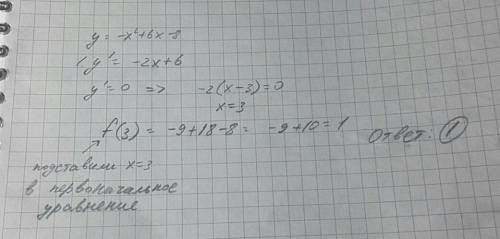 y = -x²+6x-8
y' = -2x+6
y'=0 => -2(x-3)=0
x=3
f(3) = -9+18-8= -9+10=1 Ответ: 1
подставили x=3
в первоначальное
уравнение